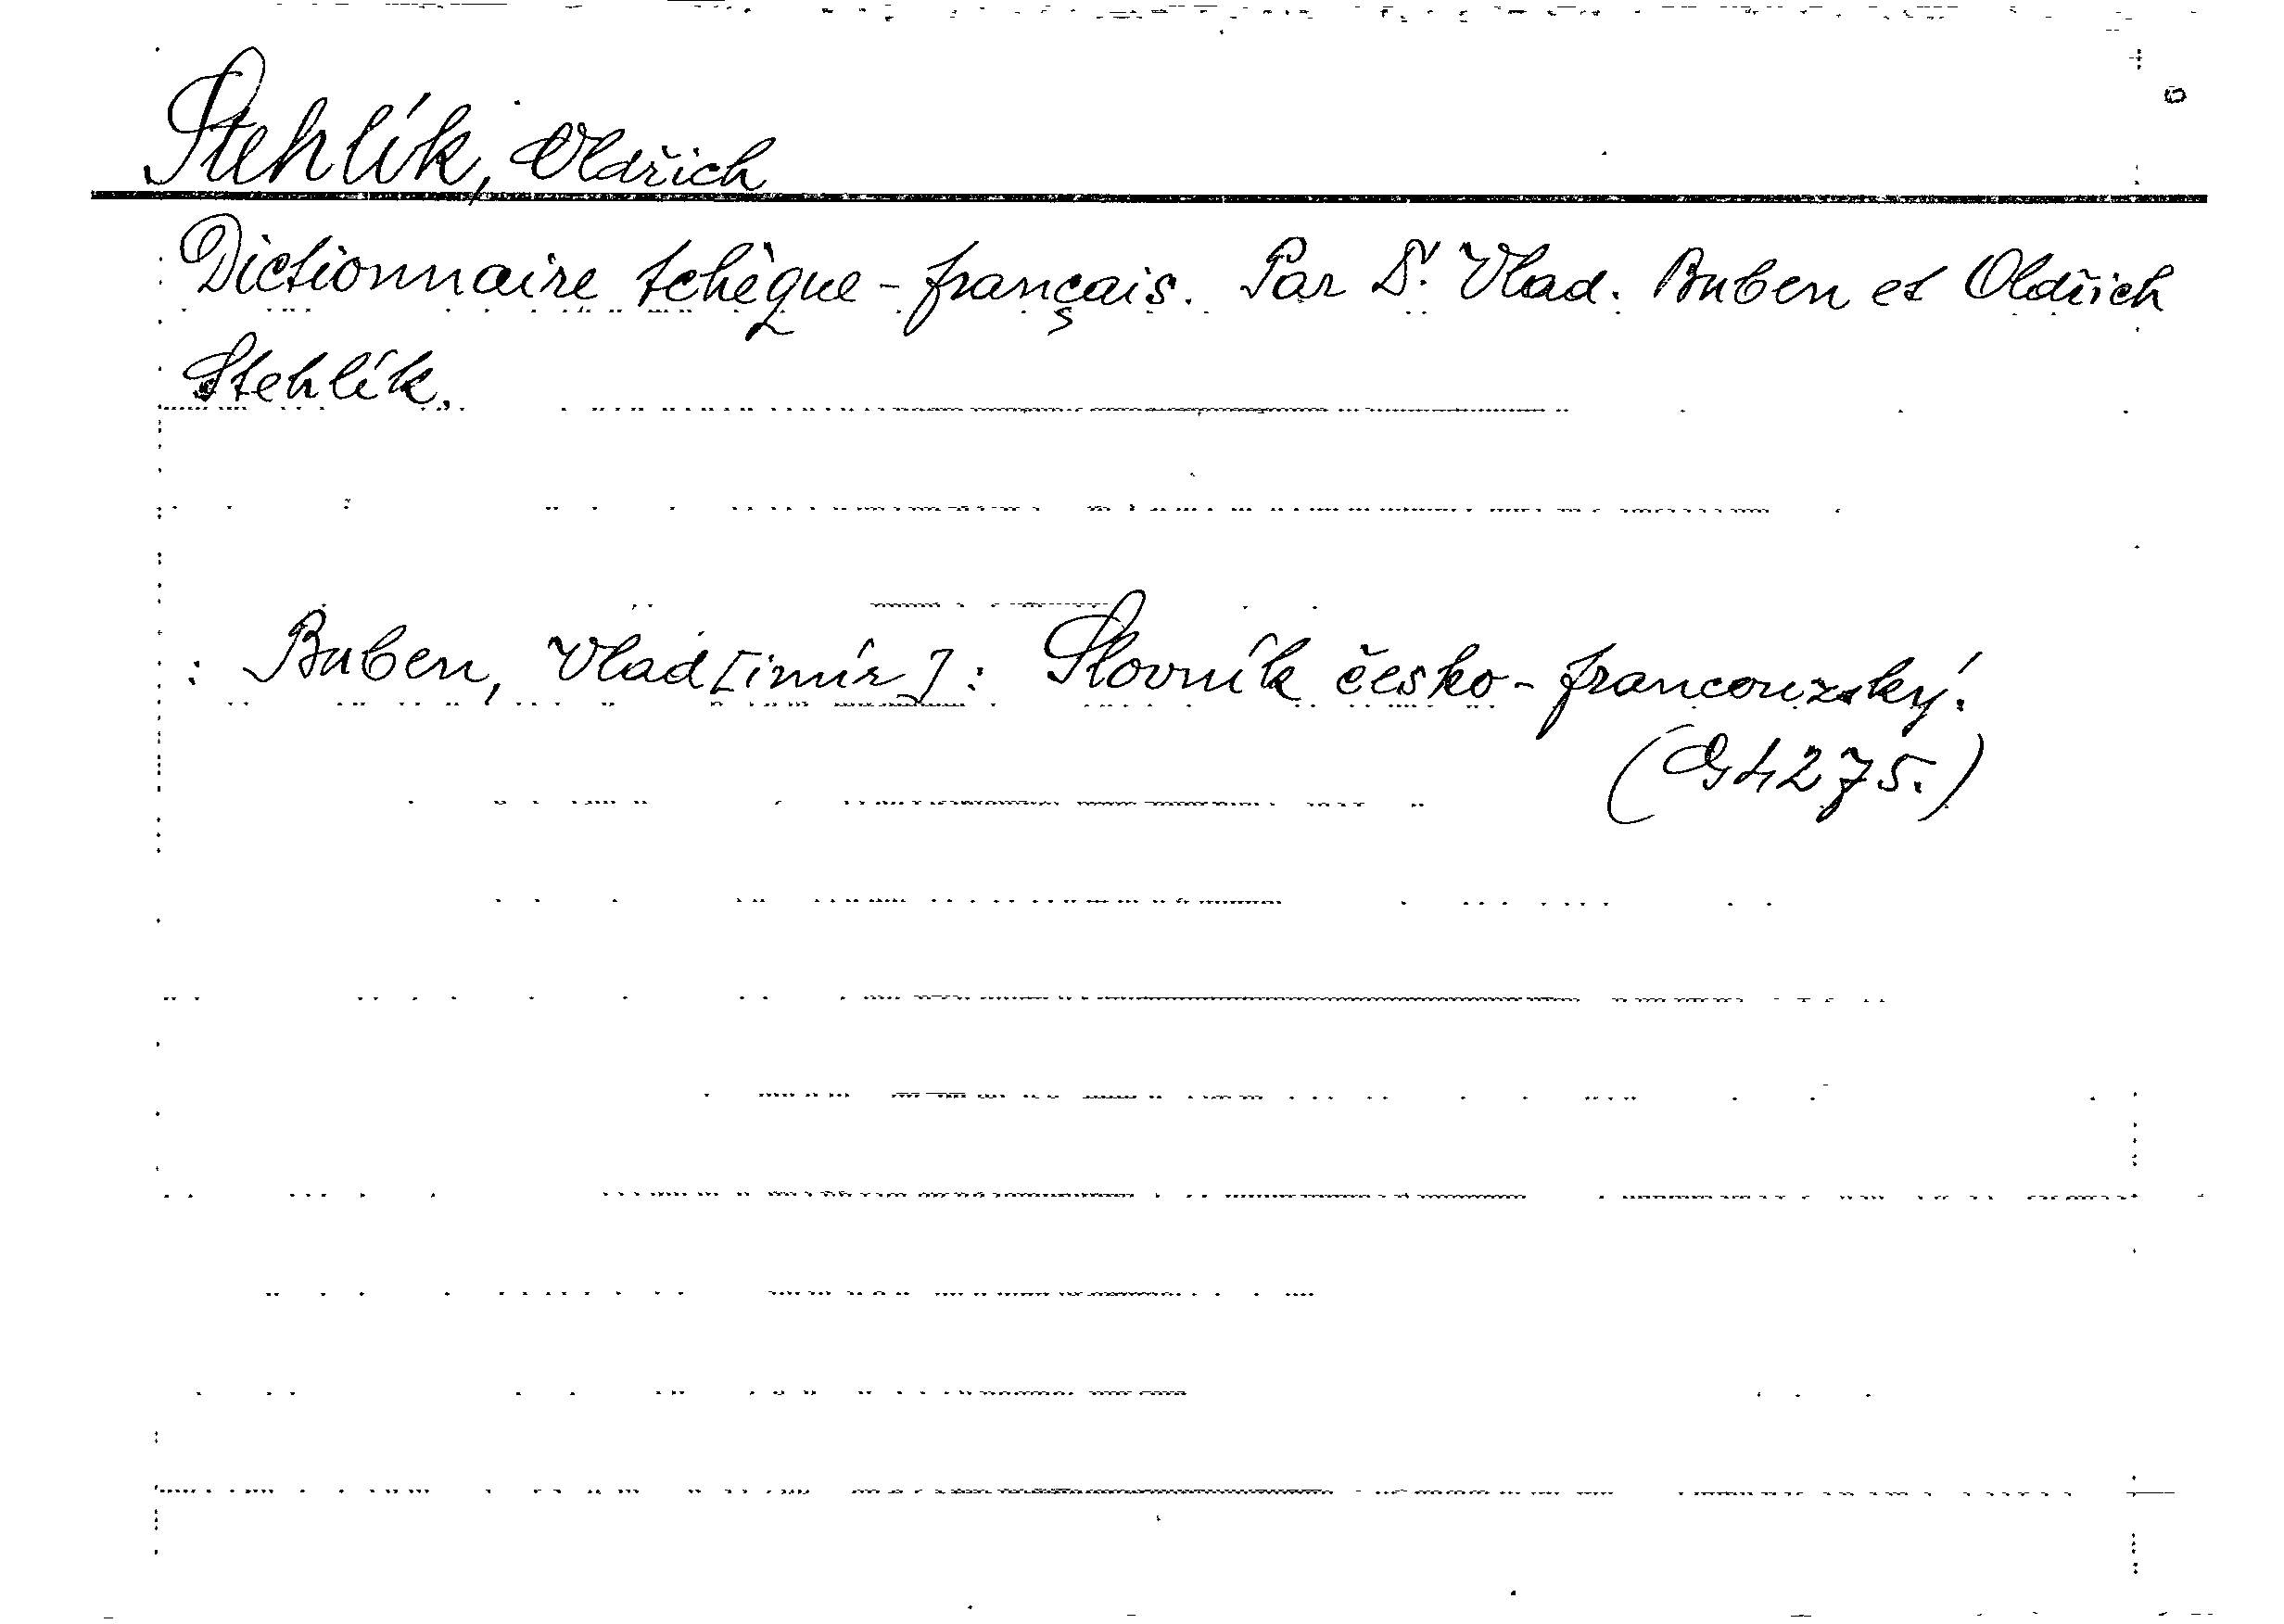 Stehlík, Oldřich
Dictionnaire tchèque-français. Par Dr. Vlad. Buben et Oldřich
Stehlík.
: Buben, Vlad[imír]: Slovník česko-francouzský.
(G4275.)